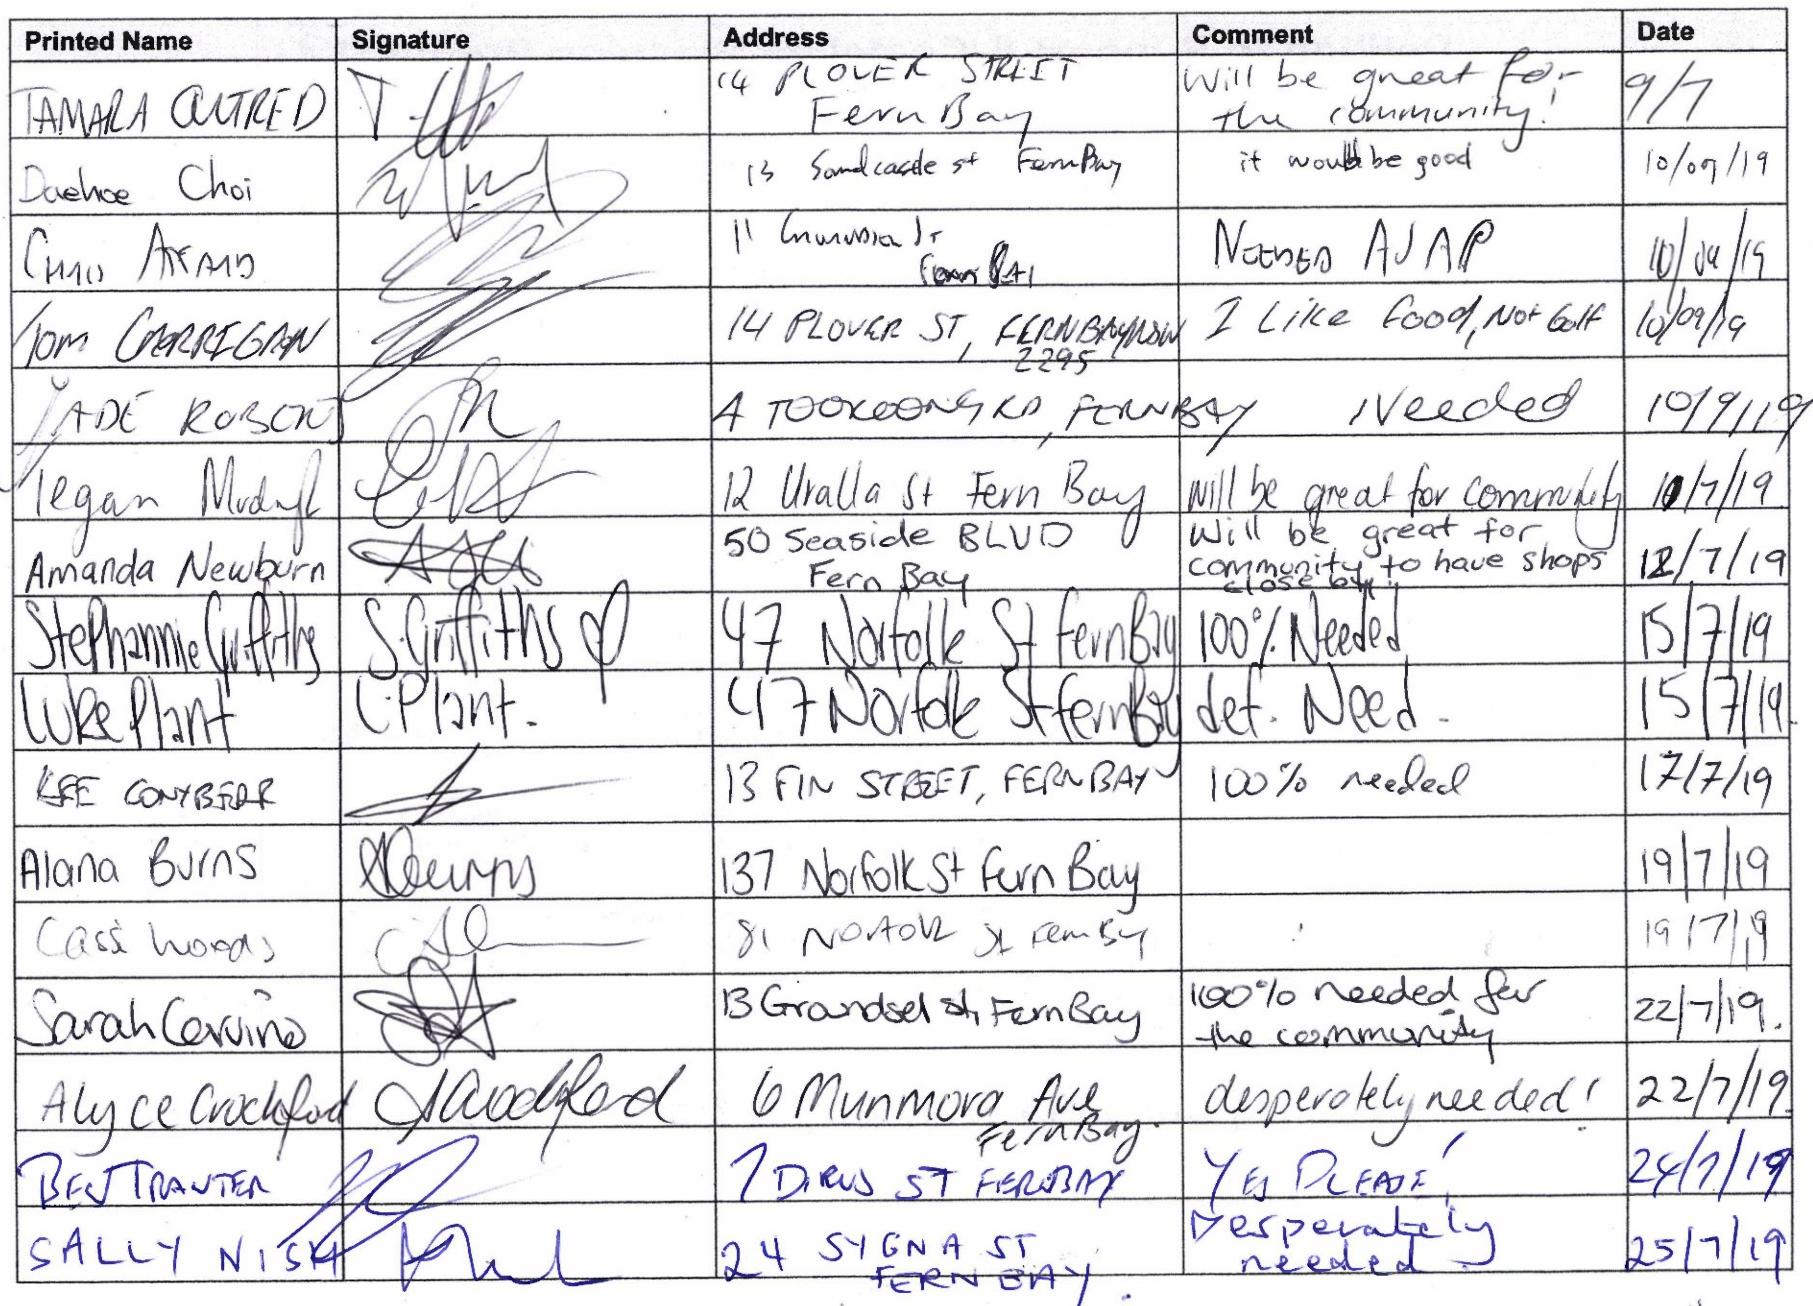 Printed Name Signature Address Comment Date
TAMARA OUTRED 14 PLOVER STREET Will be great for 9/7
Fern Bay the community!
Daehoe Choi 13 Sandcastle st Fern Bay it would be good 10/07/19
11 NEEDED ASAP
Fern Bay
Tom CARRIGAN 14 PLOVER ST, FERN BAY NSW I Like food, Not Golf 10/09/19
2295
JADE ROBERTS 4 TOOKOONG RD, FERN BAY Needed 10/9/19
Tegan 12 Uralla St Fern Bay Will be great for community 10/7/19
Amanda Newburn 50 Seaside BLVD Will be great for 12/7/19
Fern Bay community to have shops
close by!!
Stephannie Griffiths S.Griffiths 47 Norfolk St Fern Bay 100% Needed 15/7/19
Luke Plant L.Plant. 47 Norfolk St fern Bay def. Need. 15/7/19.
KEE CONYBEAR 13 FIN STREET, FERN BAY 100% needed 17/7/19
Alana Burns ABurns 137 Norfolk St Fern Bay 19/7/19
Cassi Woods 81 Norfolk St Fern Bay 19/7/19
Sarah Cervino 13 Groundsel st, Fern Bay 100% needed for 22/7/19.
the community
Alyce Crockford ACrockford 6 Munmora Ave desperately needed! 22/7/19.
Fern Bay.
BEN TRANTER 7 DIRUS ST FERN BAY YES PLEASE! 24/7/19
SALLY NISH 24 SYGNA ST Desperately 25/7/19
FERN BAY. needed